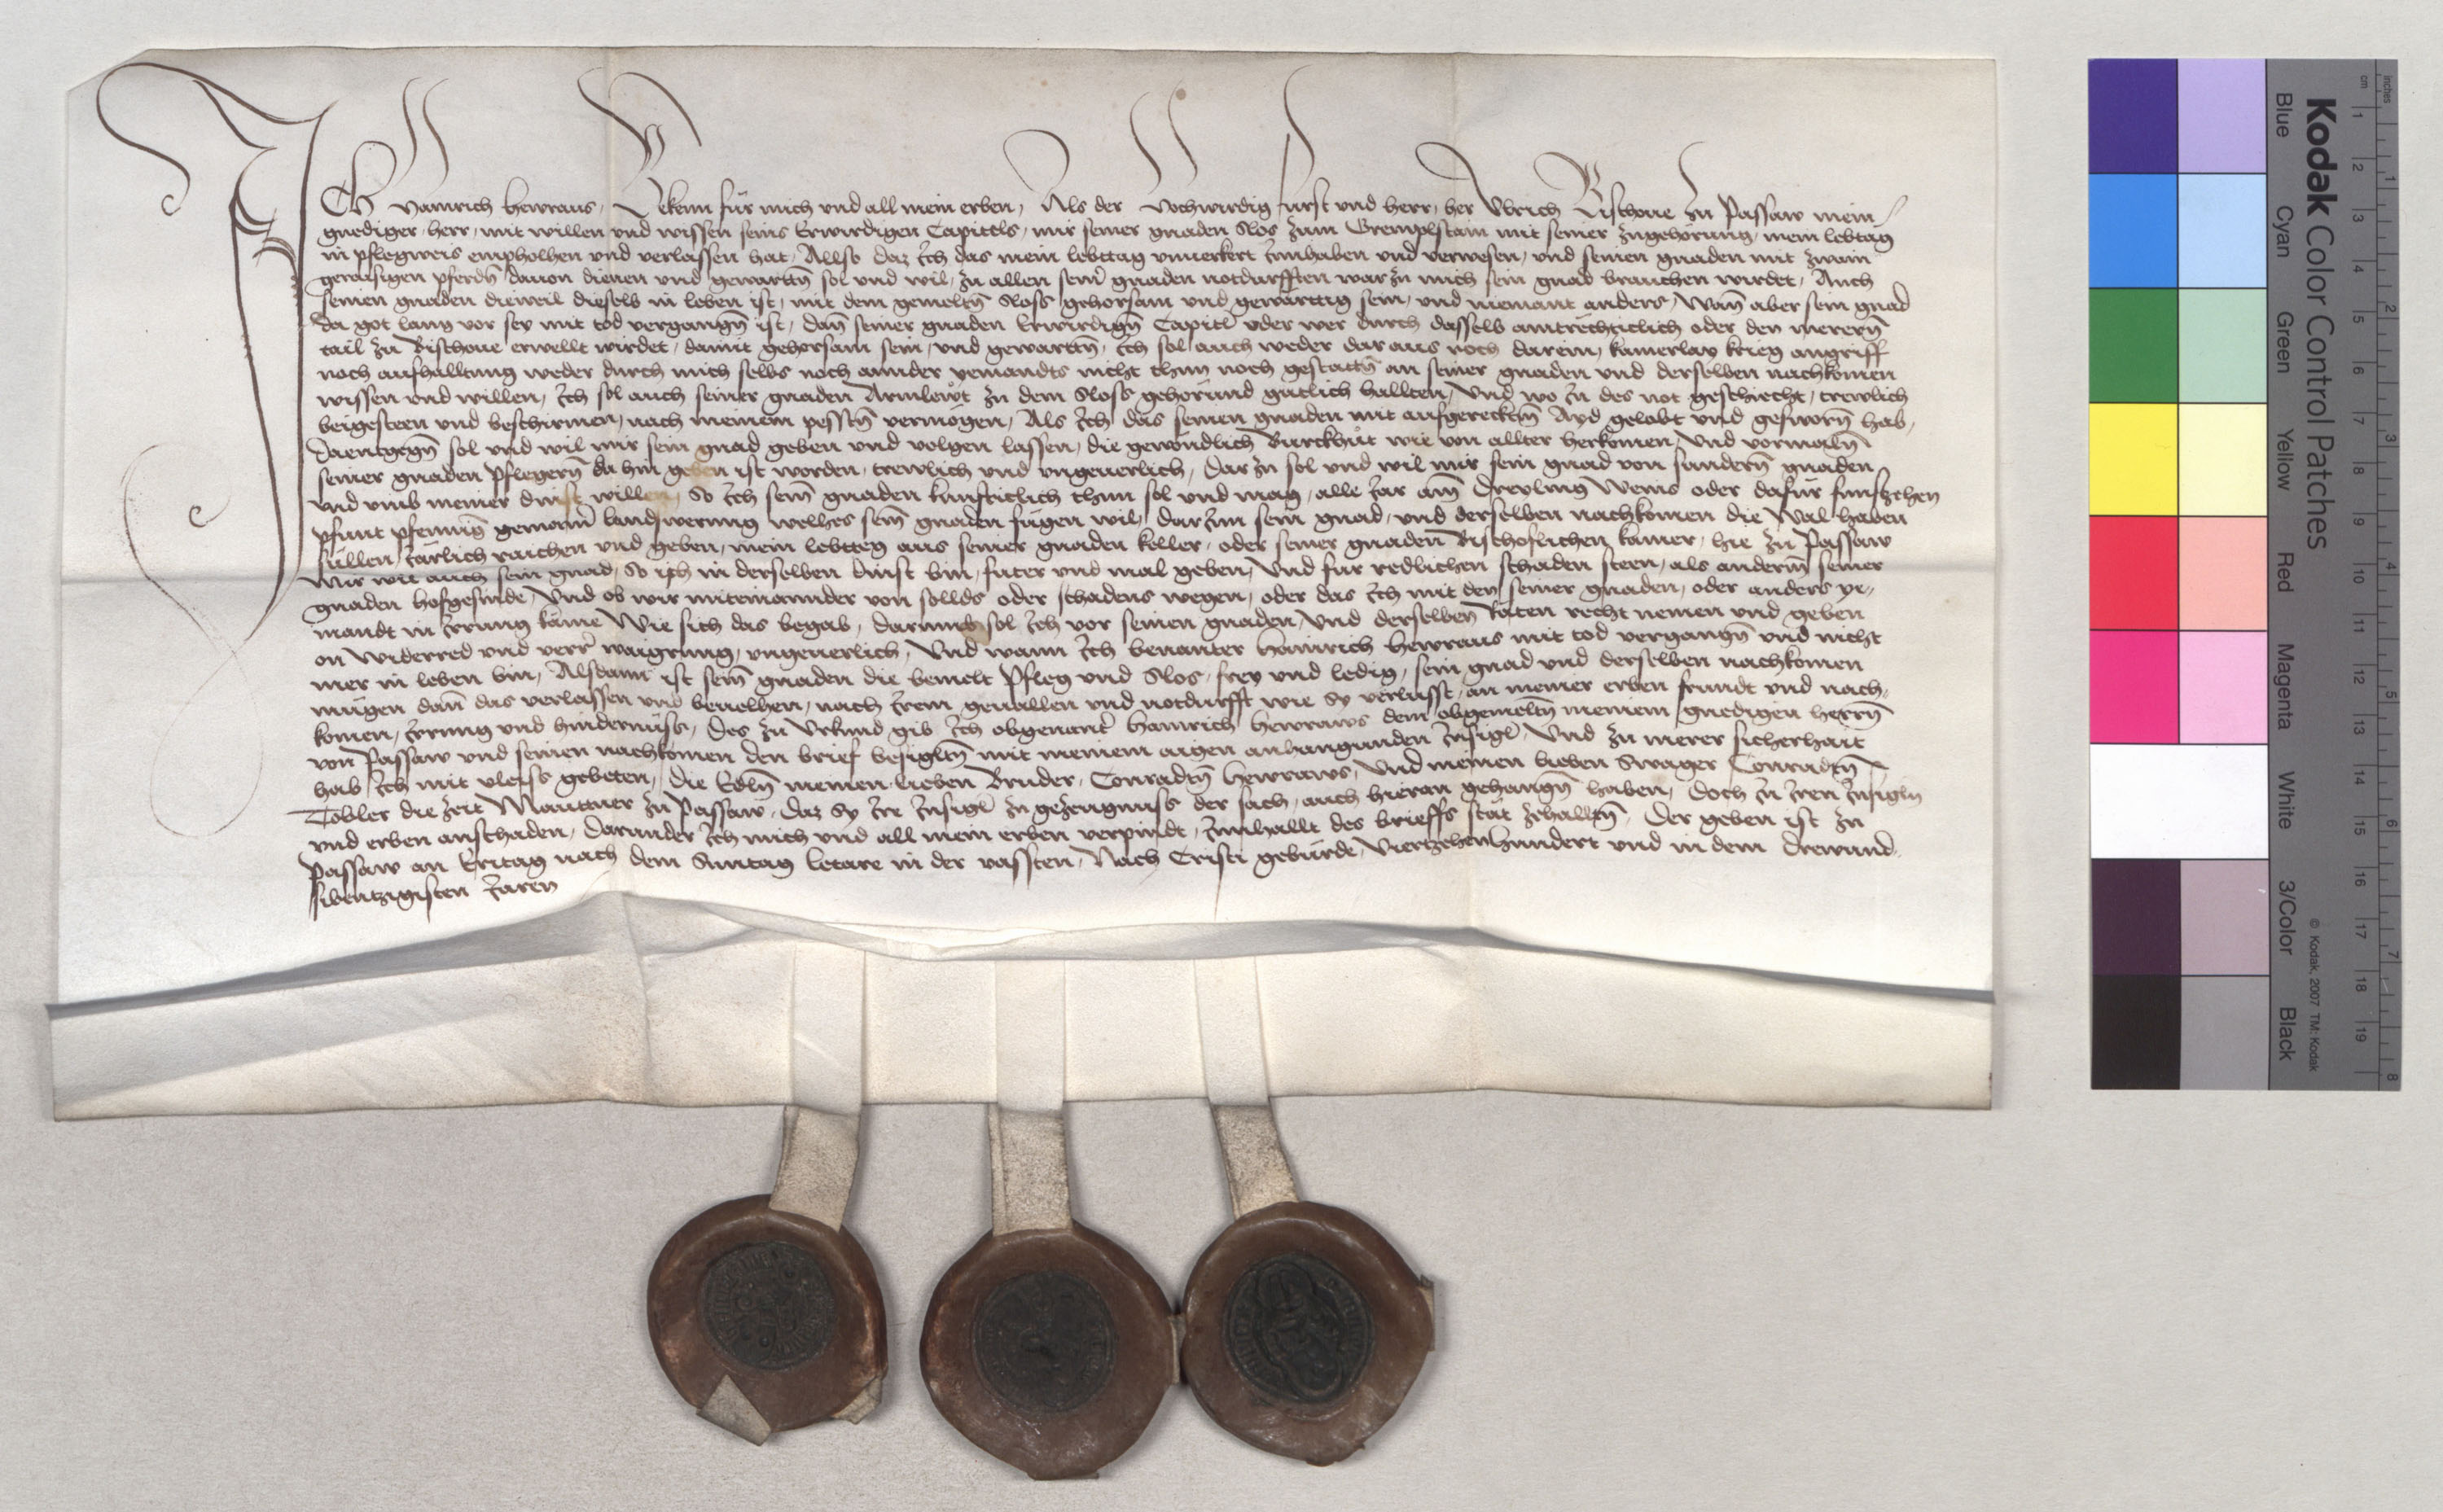 Ich Hainrich Hewraus, Bekenn für mich vnd all mein erben, Als der Hochwirdig fürst vnd herr, her Vlrich Bischoue zu Passaw mein
gnediger herr, mit willen vnd wissen seins Erwirdigen Capittls, mir seiner gnaden Slos zum Gremplstain mit seiner zugehörung, mein lebtag
in pflegweis empholhen vnd verlassen hat, Allso daz Ich das mein lebttag vnuerkert Innhaben vnd verwesen, vnd seinen gnaden mit zwain
geraisigen pferdn̄ dauon dienen vnd gewarttn̄ sol vnd wil, zu allen sein̄ gnaden notdurfften warzu mich sein gnad brauchen wirdet, Auch
seinen gnaden dieweil dieselb in leben ist, mit dem gemeltn̄ Sloss gehorsam vnd gewarttig sein, vnd niemant anders, Wan̄ aber sein gnad
da got lang vor sey mit tod vergangn̄ ist, dan̄ seiner gnaden Erwirdign̄ Capitl oder wer durch dasselb aintrechticlich oder den merern̄
tail zu Bischoue erwellt wirdet, damit gehorsam sein, vnd gewarttn̄, Ich sol auch weder daraus noch darein, kainerlay krieg angriff
noch aufhalltung weder durch mich selbs noch annder yemandts nicht thun noch gestattn̄ an seiner gnaden vnd derselben nachkomen
wissen vnd willen, Ich sol auch seiner gnaden Armlewt zu dem Sloss gehörund gütlich hallten, Vnd wo In des not geschiecht, trewlich
beigesteen vnd beschirmen, nach meinem pesstn̄ vermögen, Als Ich das seinen gnaden mit aufgerecktm̄ Ayd gelobt vnd gesworn̄ hab,
Daentgegn̄ sol vnd wil mir sein gnad geben vnd volgen lassen, die gewöndlich Burckhut wie von allter herkomen, Vnd vormaln̄
seiner gnaden Pflegern̄ da hin geben ist worden, trewlich vnd vngeuerlich, Darzu sol vnd wil mir sein gnad von sundern̄ gnaden
vnd vmb meiner dinst willen, So Ich sein̄ gnaden kunfticlich thun sol vnd mag, alle Iar ain̄ Dreyling Weins oder dafür funfzehen
pfunt pfennig gemainr landswerung welhes sein̄ gnaden fügen wil, darInn sein gnad, vnd derselben nachkomen die Wal haben
süllen, Iärlich raichen vnd geben, mein lebtteg aus seiner gnaden keller, oder seiner gnaden Bischoflichen kamer, hie zu Passaw
Mir wil auch sein gnad, So ich in derselben dinst bin, futer vnd mal geben, Vnd für redlichen schaden steen, als anderm̄ seiner
gnaden hofgesinde, Vnd ob wir miteinannder von sollds oder schadens wegen, oder das Ich mit den seiner gnaden, oder anders ye-
mandt in Irrung käme Wie sich das begab, darumb sol Ich vor seinen gnaden, Vnd derselben Räten recht nemen vnd geben
on Widerred vnd verr waigrung, vngeuerlich, Vnd wann Ich benanter Hainrich Hewraus mit tod vergangn̄ vnd nicht
mer in leben bin, Alsdann ist sein̄ gnaden die bemelt Pfleg vnd Slos, frey vnd ledig, sein gnad vnd derselben nachkomen
mügen dan̄ das verlassen vnd beuelhen, nach Irem geuallen vnd notdurfft wie Sy verlusst, an meiner erben frundt vnd nach-
komen, Irrung vnd hindernüss, Des zu Vrkund gib Ich obgenantr Hainrich Hewraws dem obgemeltn̄ meinem gnedigen herrn̄
von Passaw vnd seinen nachkomen den brief besigltn̄ mit meinem aigen anhangunden Insigl, Vnd zu merer sicherhait
hab Ich mit vleiss gebeten, die Edln̄ meinen lieben Bruder, Conradtn̄ Hewraws, Vnd meinen lieben Swager Conradtn̄
Tobler die zeit Mauttner zu Passaw, Daz Sy Ire Insigl zu gezeugnuss der sach, auch hieran gehangn̄ haben, Doch In Iren Insigln
vnd erben anschaden, Darunder Ich mich vnd all mein erben verpindt, Innhallt des brieffs stät zehalltn̄, Der geben ist zu
Passaw an Eritag nach dem Sunntag letare in der vassten, Nach Cristi gebürde, Viertzehenhundert vnd in dem drewund-
sibentzigisten Iaren
Kodak Color Control Patches
Blue Cyan Green Yellow Red Magenta White 3/Color Black
© Kodak, 2007 TM: Kodak
inches 1 2 3 4 5 6 7 8
cm 1 2 3 4 5 6 7 8 9 10 11 12 13 14 15 16 17 18 19